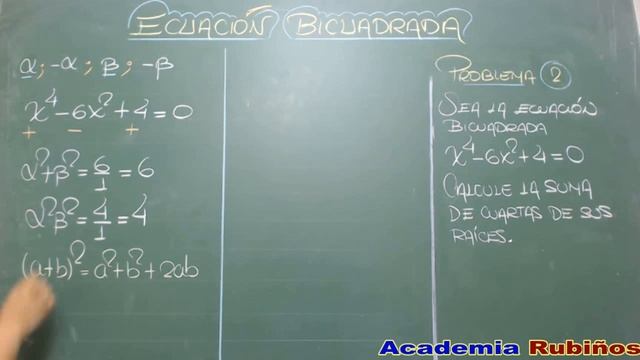 ECUACIÓN BICUADRADA
α ; -α ; β ; -β
x⁴ - 6x² + 4 = 0
+ - +
α² + β² = 6/1 = 6
α²β² = 4/1 = 4
(a+b)² = a² + b² + 2ab
PROBLEMA 2
SEA LA ECUACIÓN
BICUADRADA
x⁴ - 6x² + 4 = 0
CALCULE LA SUMA
DE CUARTAS DE SUS
RAÍCES.
Academia Rubiños